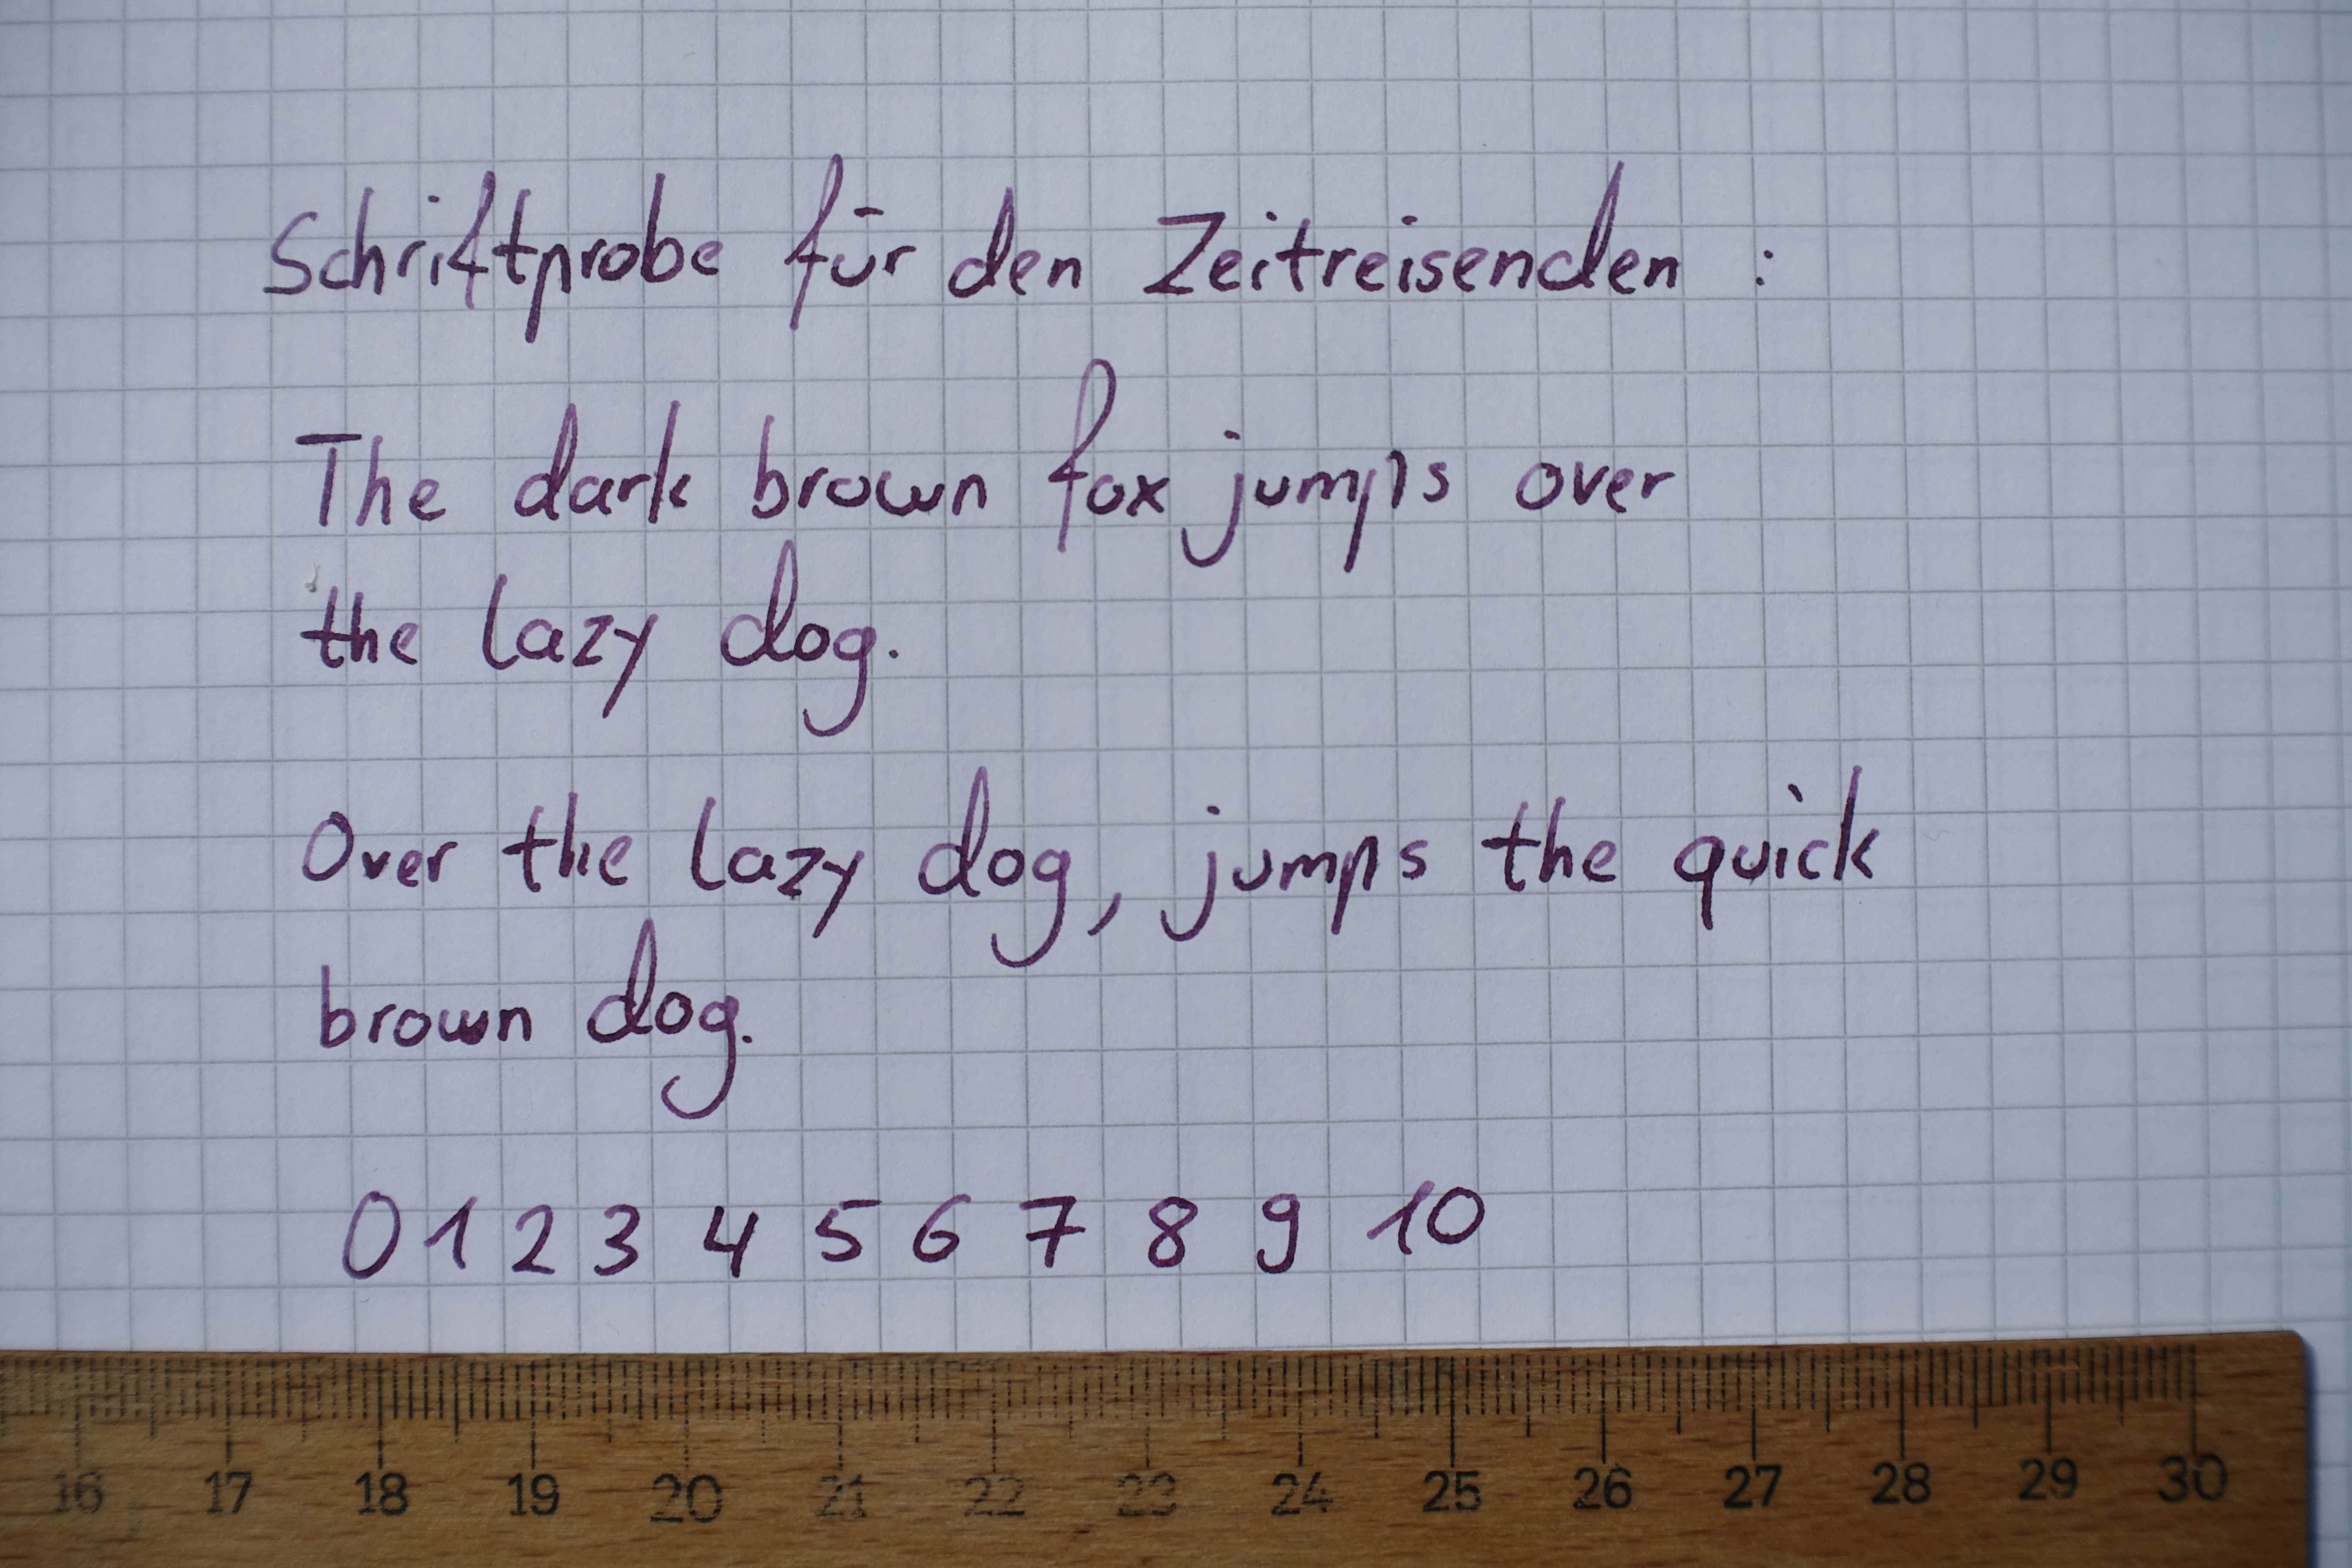 Schriftprobe für den Zeitreisenden :
The dark brown fox jumps over
the lazy dog.
Over the lazy dog, jumps the quick
brown dog.
0 1 2 3 4 5 6 7 8 9 10
16 17 18 19 20 21 22 23 24 25 26 27 28 29 30